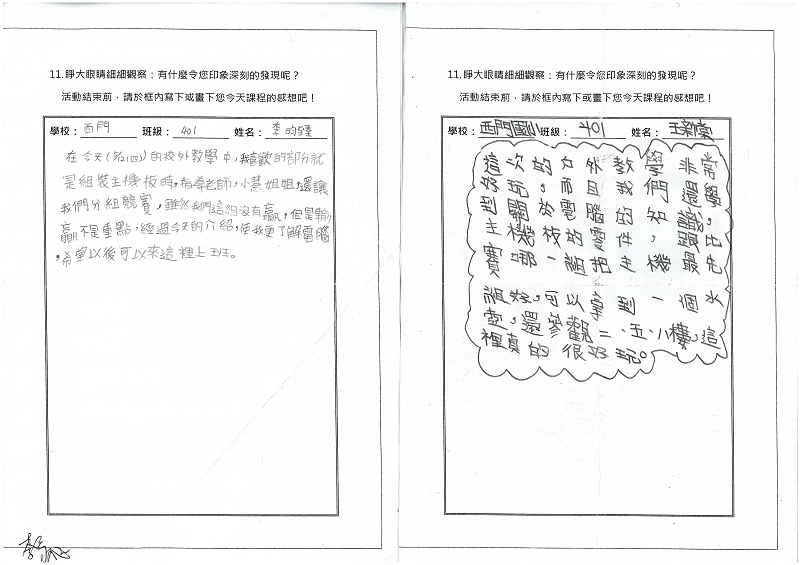 11.睜大眼睛細細觀察：有什麼令您印象深刻的發現呢？
活動結束前，請於框內寫下或畫下您今天課程的感想吧！
學校：西門 班級：401 姓名：李昀臻
在今天(5/21(四))的校外教學中，我喜歡的部分就
是組裝主機板時，指導老師，小慧姐姐，還讓
我們分組競賽，雖然我們這組沒有贏，但是輸
贏不是重點，經過今天的介紹，使我更了解電腦
，希望以後可以來這裡上班。
11.睜大眼睛細細觀察：有什麼令您印象深刻的發現呢？
活動結束前，請於框內寫下或畫下您今天課程的感想吧！
學校：西門國小 班級：401 姓名：王
這次的戶外教學非常
好玩。而且我們還學
到關於電腦的知識，
主機板的零件，比
賽哪一組把主機最先
組好，可以拿到一個水
壺，還參觀二、五、八樓，這
裡真的很好玩。